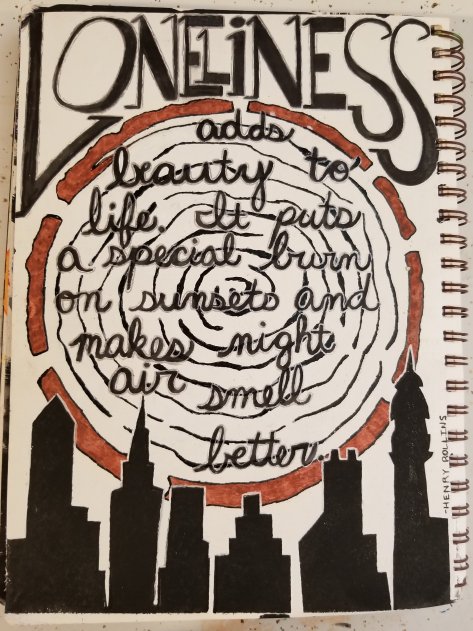 LONELiNESS
adds
beauty to
life. It puts
a special burn
on sunsets and
makes night
air smell
better.
-HENRY ROLLINS